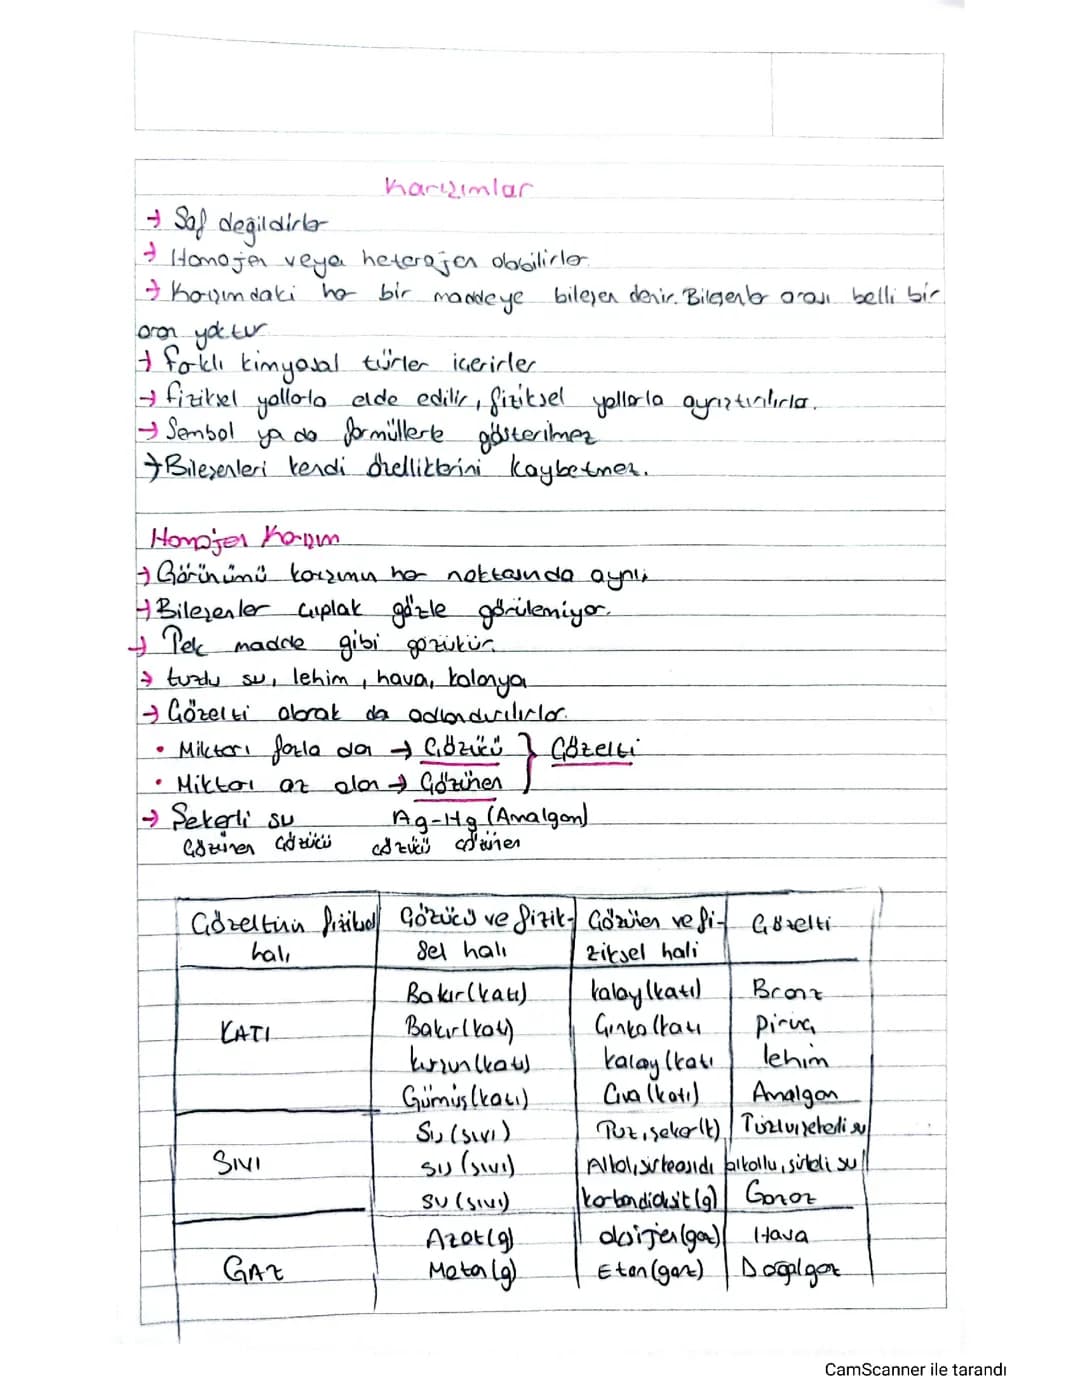 Karışımlar
→ Saf değildirler
→ Homojen veya heterojen olabilirler.
→ Karışımdaki her bir maddeye bileşen denir. Bileşenler arası belli bir
oran yoktur
→ Farklı kimyasal türler içerirler
→ Fiziksel yollarla elde edilir, fiziksel yollarla ayrıştırılırlar.
→ Sembol ya da formüllerle gösterilmez
→ Bileşenleri kendi özelliklerini kaybetmez.
Homojen Karışım
→ Görünümü karışımın her noktasında aynı;
→ Bileşenler çıplak gözle görülemiyor.
→ Tek madde gibi gözükür.
→ tuzlu su, lehim, hava, kolonya
→ Çözelti olarak da adlandırılırlar.
• Miktarı fazla olan → Çözücü } Çözelti
• Miktarı az olan → Çözünen
→ Şekerli su Ag-Hg (Amalgam)
Çözünen Çözücü çözücü çözünen
Çözeltinin fiziksel Çözücü ve fizik- Çözünen ve fi- Çözelti
hali sel hali ziksel hali
Bakır (katı) kalay (katı) Bronz
KATI Bakır (katı) Çinko (katı Pirinç
kurşun (katı) kalay (katı lehim
Gümüş (katı) Civa (katı) Amalgam
Su (sıvı) Tuz, şeker (k) Tuzlu, şekerli su
SIVI su (sıvı) Alkol, sirke asidi alkollü, sirkeli su
su (sıvı) karbondioksit (g) Gazoz
Azot (g) oksijen (gaz) Hava
GAZ Metan (g) Etan (gaz) Doğalgaz
CamScanner ile tarandı